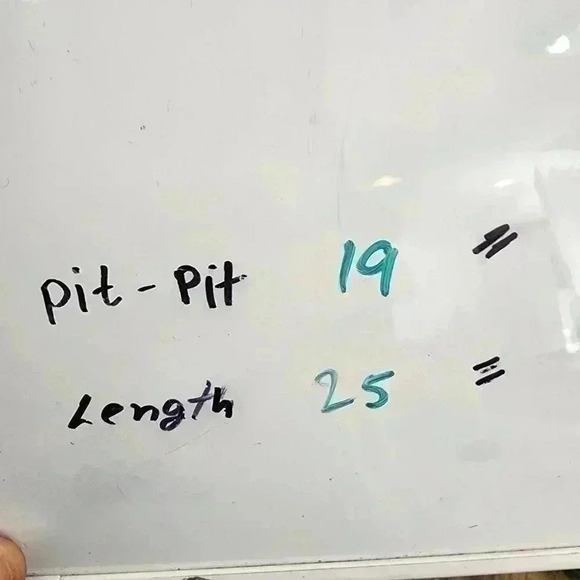 pit - Pit 19 "
Length 25 "